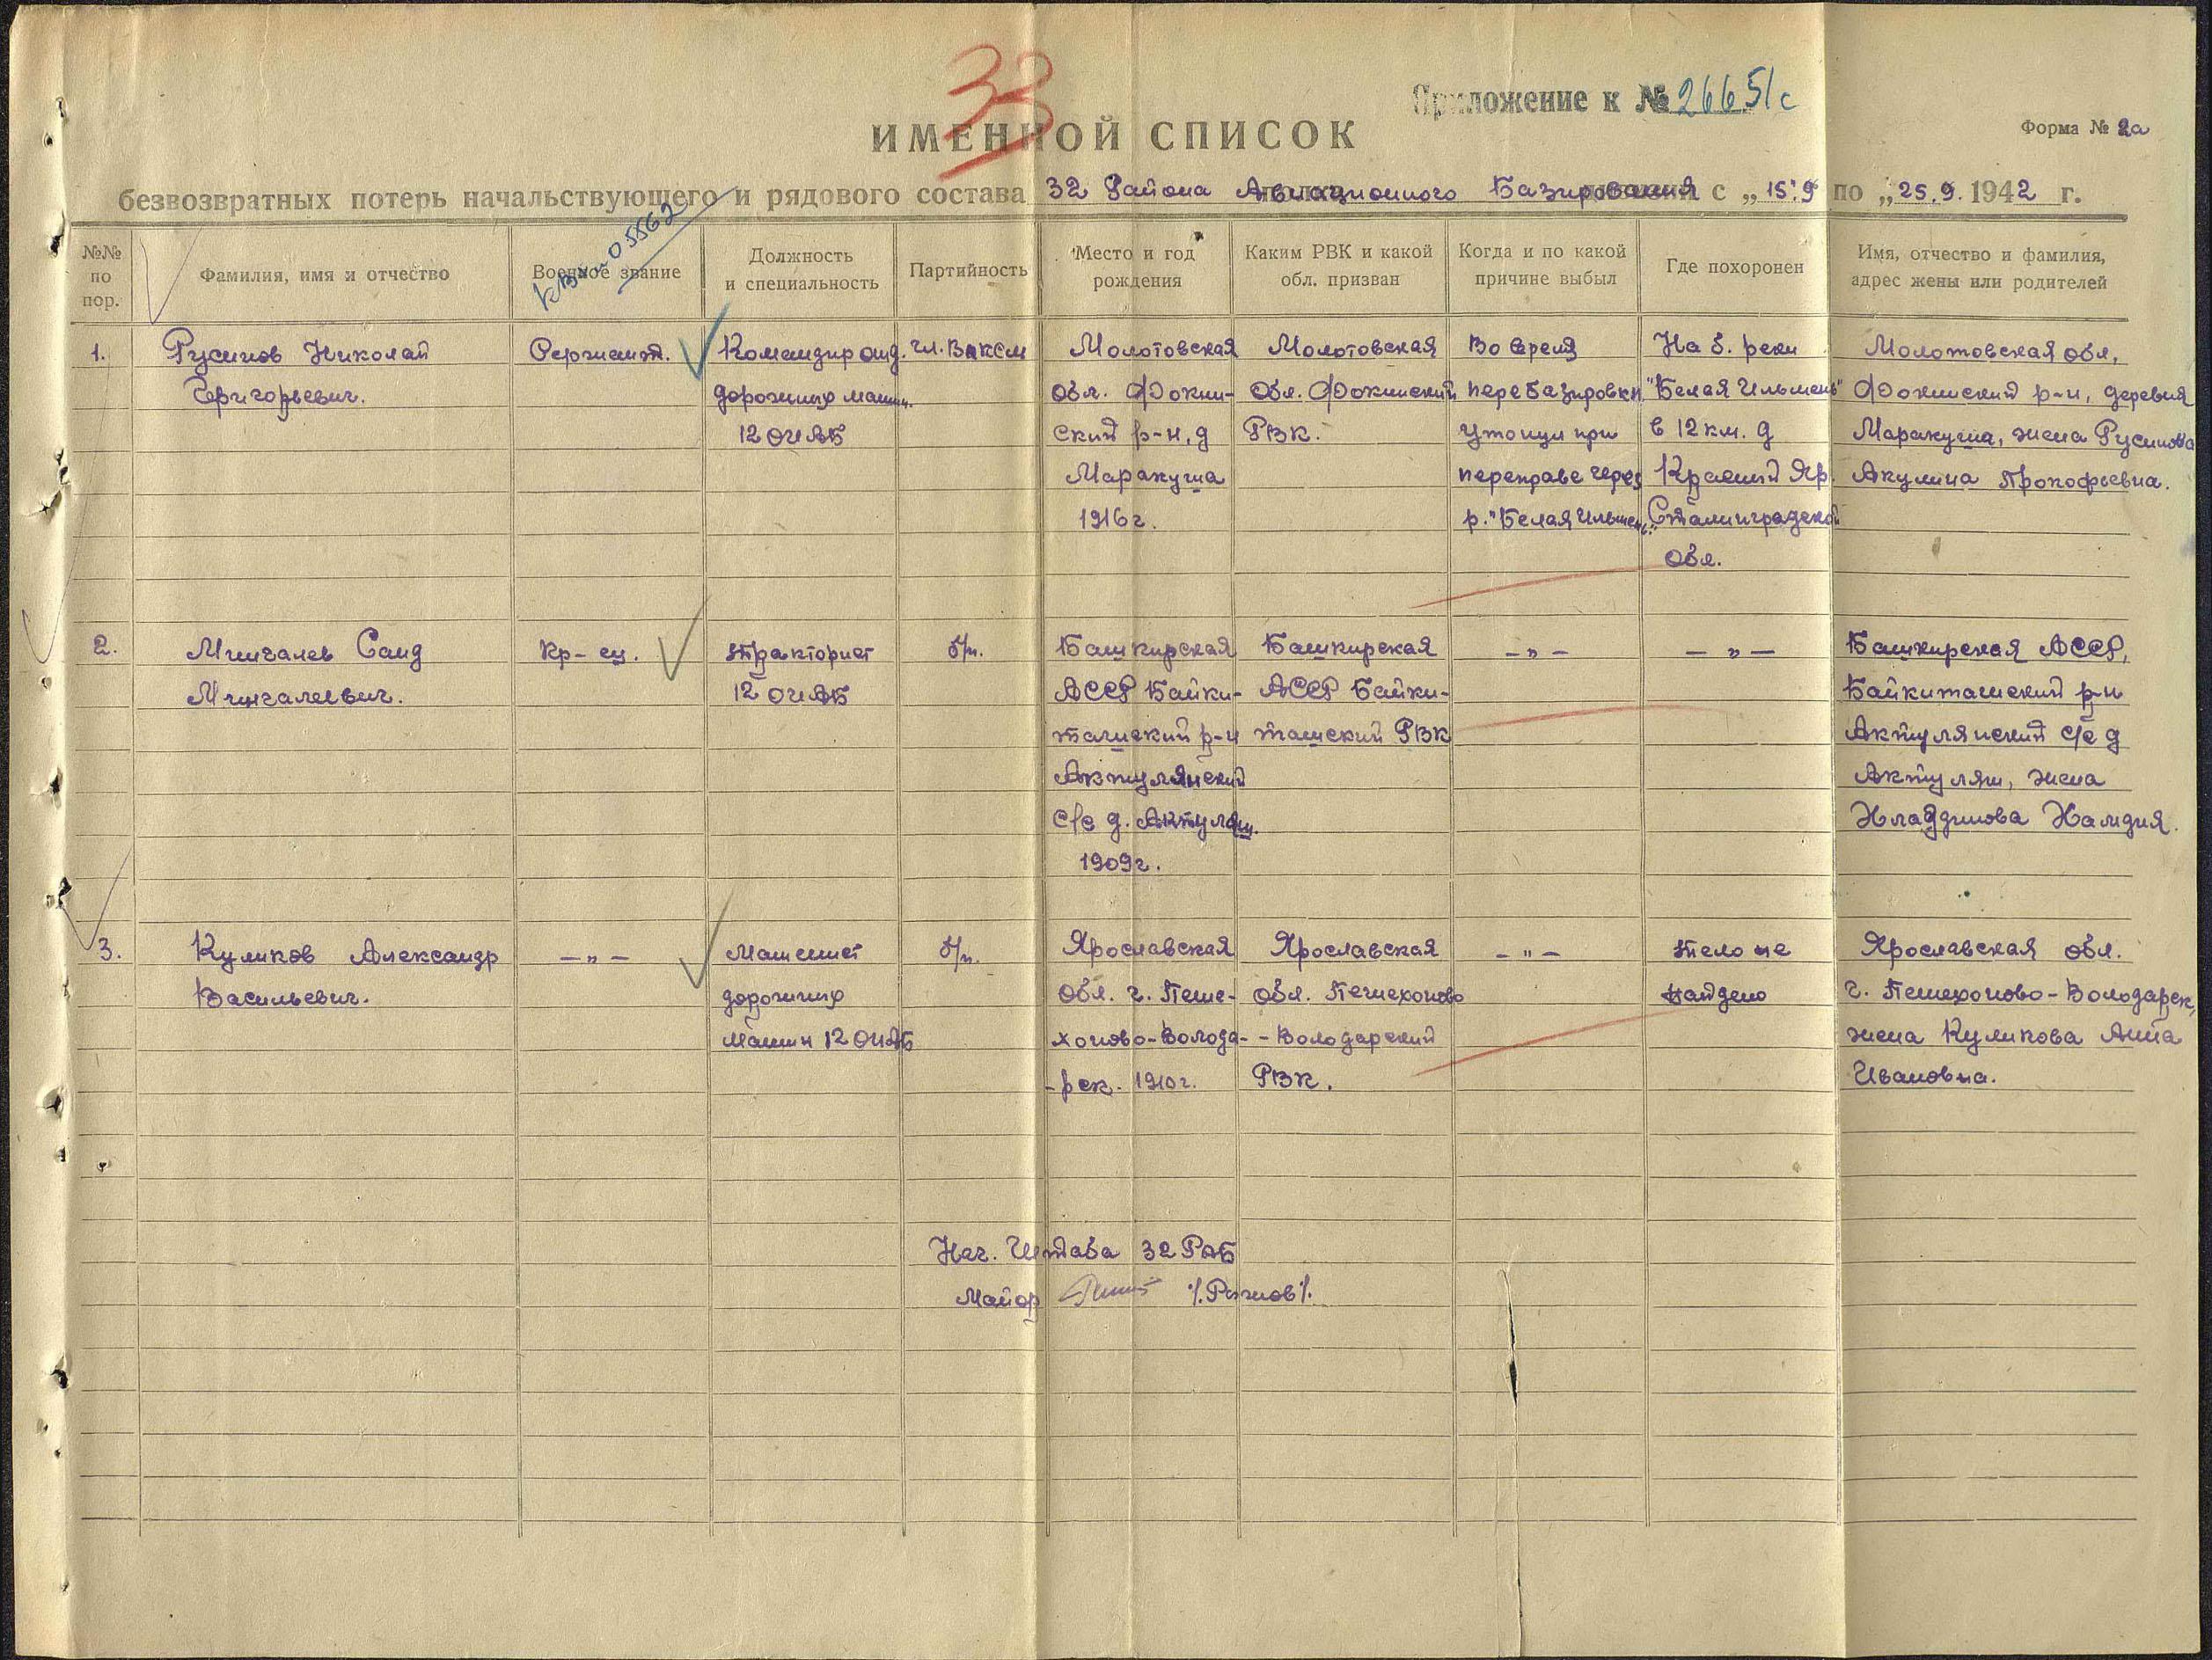 33
Приложение к № 26651с
ИМЕННОЙ СПИСОК
Форма № 2а
безвозвратных потерь начальствующего и рядового состава 32 Района Авиационного Базирования с „15.9 по „25.9. 1942 г.
к вх. 05562
№№ по пор.
Фамилия, имя и отчество
Военное звание
Должность и специальность
Партийность
Место и год рождения
Каким РВК и какой обл. призван
Когда и по какой причине выбыл
Где похоронен
Имя, отчество и фамилия, адрес жены или родителей
1.
Русинов Николай
Григорьевич.
Сержант.
Командир отд.
дорожных машин.
12 ОИАБ
чл. ВЛКСМ
Молотовская
обл. Фокин-
ский р-н, д
Маракуша
1916 г.
Молотовская
Обл. Фокинский
РВК.
Во время
перебазировки
утонул при
переправе через
р. "Белая Ильмень".
На б. реки
"Белая Ильмень"
в 12 км. д
Красный Яр.
Сталинградской
обл.
Молотовская обл,
Фокинский р-н, деревня
Маракуша, жена Русинова
Акулина Прокофьевна.
2.
Мингалев Саид
Мингалеевич.
Кр-ец.
тракторист
12 ОИАБ
б/п.
Башкирская
АССР Байки-
ташский р-н
Актулянский
с/с д. Актуляш.
1909 г.
Башкирская
АССР Байки-
ташский РВК
-„-
-„-
Башкирская АССР,
Байкиташский р-н
Актулянский с/с д
Актуляш, жена
Хладдинова Хамдия.
3.
Куликов Александр
Васильевич.
-„-
Машинист
дорожных
машин 12 ОИАБ
б/п.
Ярославская
обл. г. Поше-
хоново-Волода-
-рск. 1910 г.
Ярославская
обл. Пошехоново
-Володарский
РВК.
-„-
тело не
найдено
Ярославская обл.
г. Пошехоново-Володарск,
жена Куликова Анна
Ивановна.
Нач. Штаба 32 РАБ
Майор